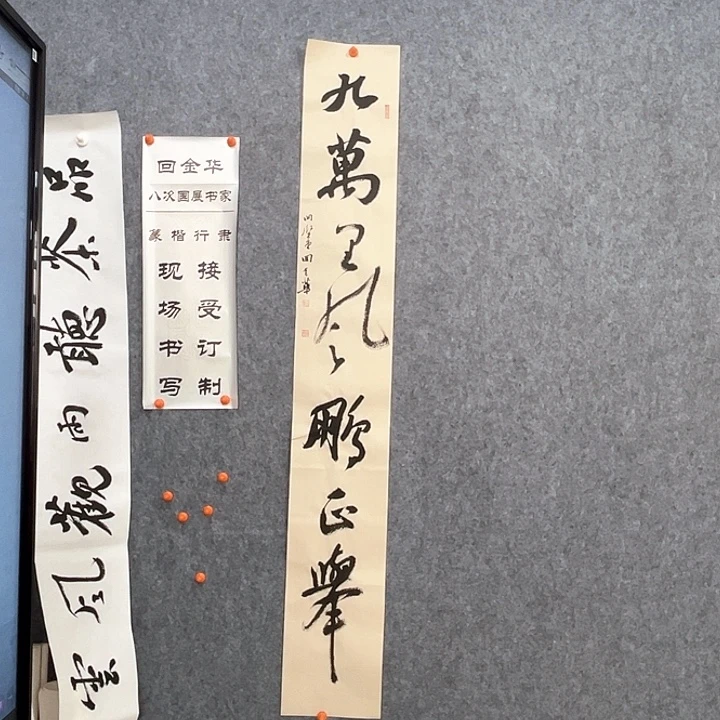 品茶聽雨觀風雲
回金华
八次国展书家
篆楷行隶
现场书写
接受订制
九萬里風鵬正舉
回金華